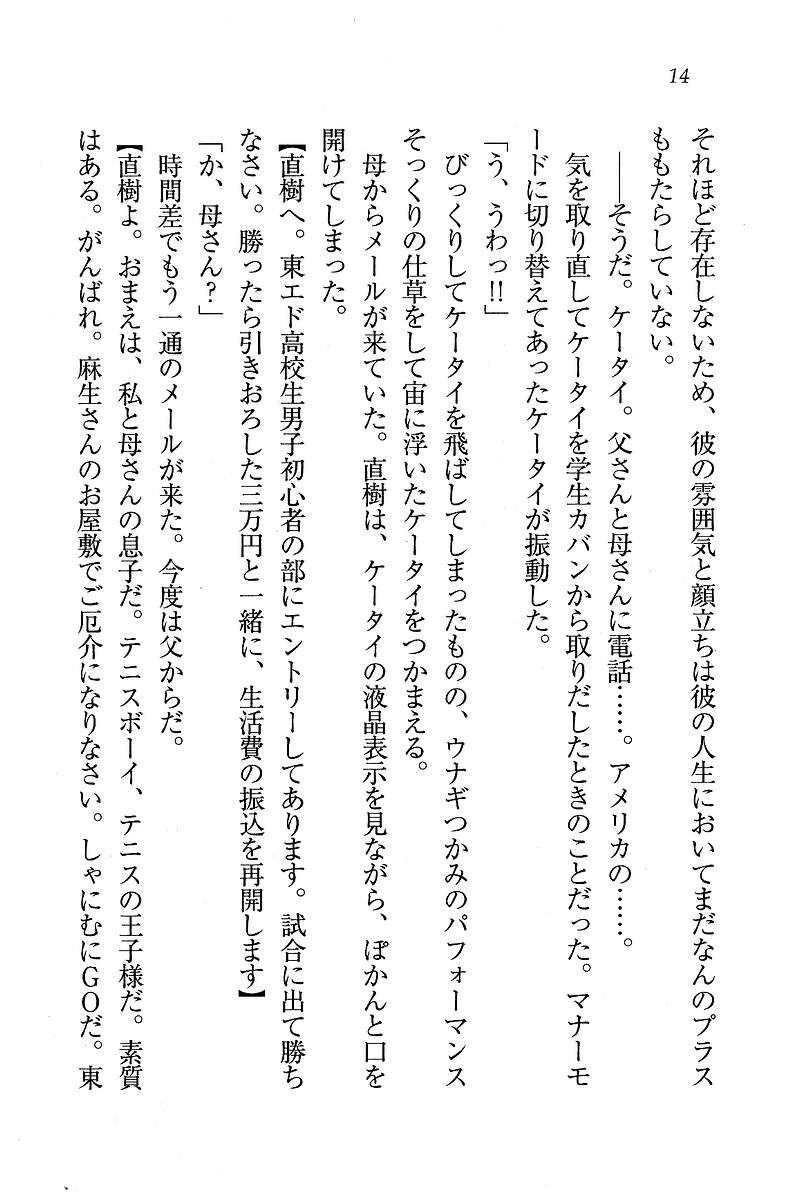 14
それほど存在しないため、彼の雰囲気と顔立ちは彼の人生においてまだなんのプラス
ももたらしていない。
――そうだ。ケータイ。父さんと母さんに電話……。アメリカの……。
気を取り直してケータイを学生カバンから取りだしたときのことだった。マナーモ
ードに切り替えてあったケータイが振動した。
「う、うわっ!!」
びっくりしてケータイを飛ばしてしまったものの、ウナギつかみのパフォーマンス
そっくりの仕草をして宙に浮いたケータイをつかまえる。
母からメールが来ていた。直樹は、ケータイの液晶表示を見ながら、ぽかんと口を
開けてしまった。
【直樹へ。東エド高校生男子初心者の部にエントリーしてあります。試合に出て勝ち
なさい。勝ったら引きおろした三万円と一緒に、生活費の振込を再開します】
「か、母さん？」
時間差でもう一通のメールが来た。今度は父からだ。
【直樹よ。おまえは、私と母さんの息子だ。テニスボーイ、テニスの王子様だ。素質
はある。がんばれ。麻生さんのお屋敷でご厄介になりなさい。しゃにむにGOだ。東